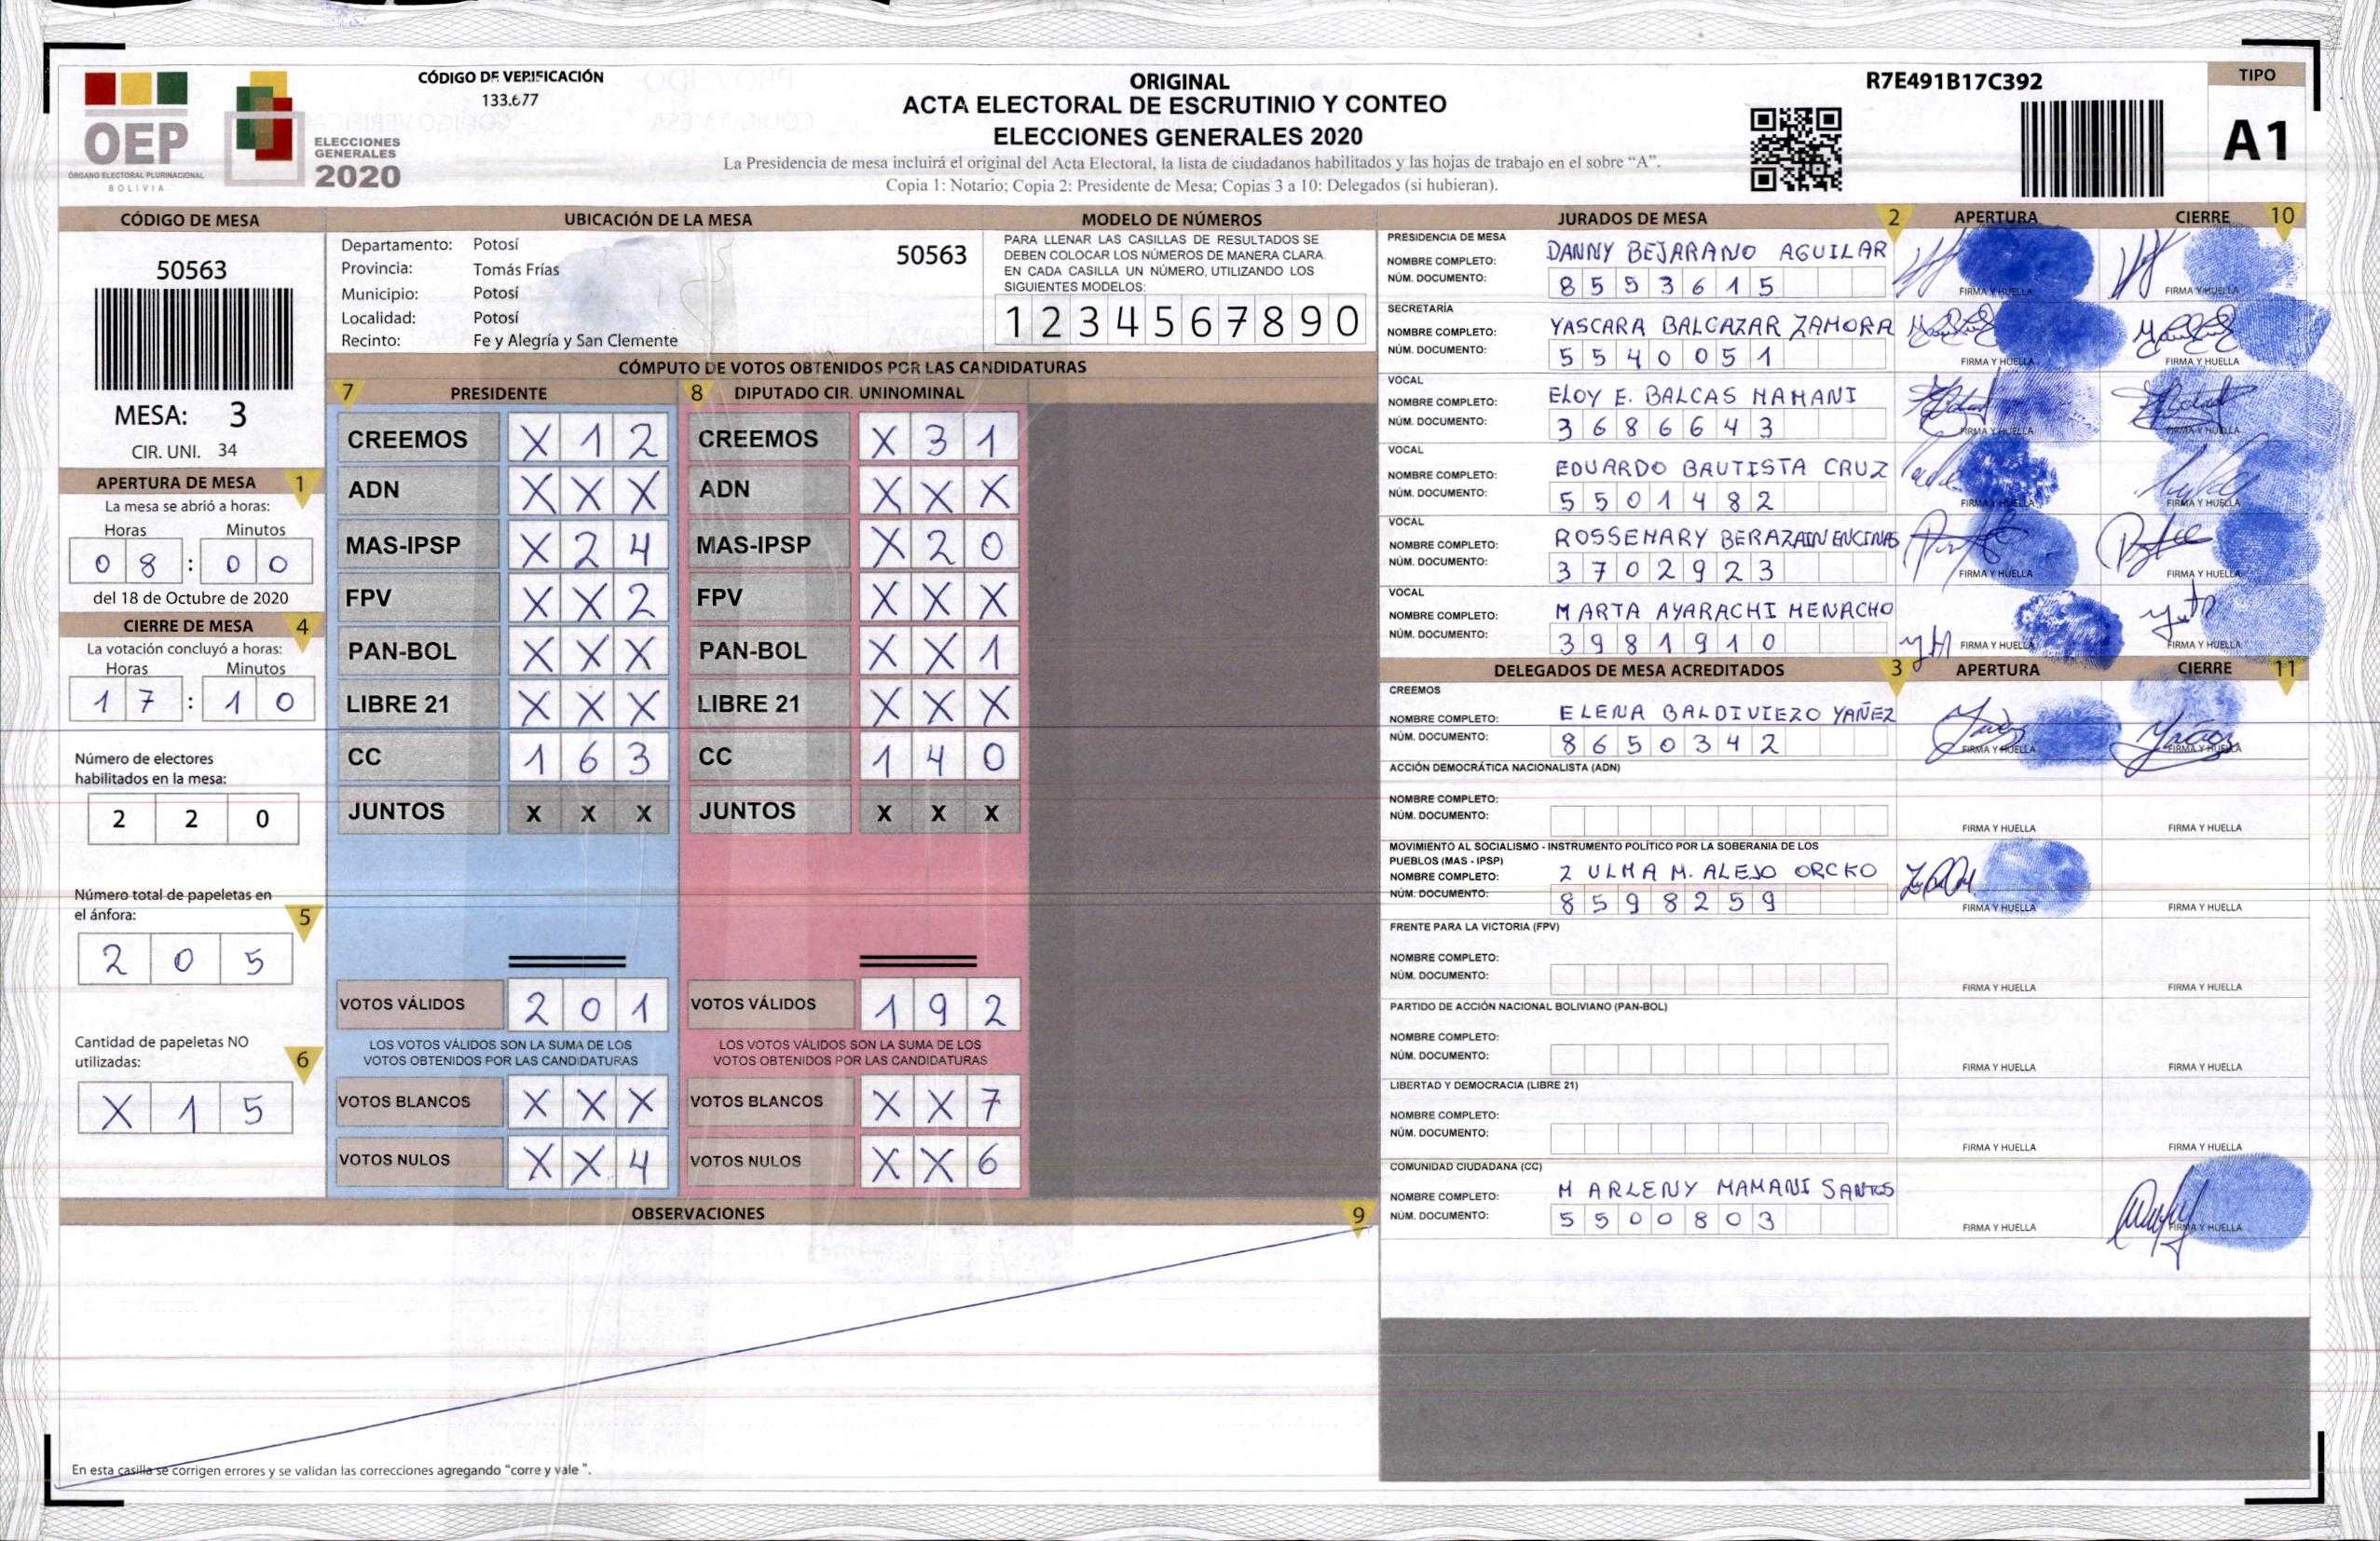 OEP
ÓRGANO ELECTORAL PLURINACIONAL
BOLIVIA
ELECCIONES
GENERALES
2020
CÓDIGO DE VERIFICACIÓN
133.677
ORIGINAL
ACTA ELECTORAL DE ESCRUTINIO Y CONTEO
ELECCIONES GENERALES 2020
La Presidencia de mesa incluirá el original del Acta Electoral, la lista de ciudadanos habilitados y las hojas de trabajo en el sobre “A”.
Copia 1: Notario; Copia 2: Presidente de Mesa; Copias 3 a 10: Delegados (si hubieran).
R7E491B17C392
TIPO
A1
CÓDIGO DE MESA
50563
MESA: 3
CIR. UNI. 34
APERTURA DE MESA 1
La mesa se abrió a horas:
Horas Minutos
0 8 : 0 0
del 18 de Octubre de 2020
CIERRE DE MESA 4
La votación concluyó a horas:
Horas Minutos
1 7 : 1 0
Número de electores
habilitados en la mesa:
2 2 0
Número total de papeletas en
el ánfora: 5
2 0 5
Cantidad de papeletas NO
utilizadas: 6
X 1 5
UBICACIÓN DE LA MESA
Departamento: Potosí 50563
Provincia: Tomás Frías
Municipio: Potosí
Localidad: Potosí
Recinto: Fe y Alegría y San Clemente
MODELO DE NÚMEROS
PARA LLENAR LAS CASILLAS DE RESULTADOS SE
DEBEN COLOCAR LOS NÚMEROS DE MANERA CLARA.
EN CADA CASILLA UN NÚMERO, UTILIZANDO LOS
SIGUIENTES MODELOS:
1 2 3 4 5 6 7 8 9 0
CÓMPUTO DE VOTOS OBTENIDOS POR LAS CANDIDATURAS
7 PRESIDENTE
CREEMOS X 1 2
ADN X X X
MAS-IPSP X 2 4
FPV X X 2
PAN-BOL X X X
LIBRE 21 X X X
CC 1 6 3
JUNTOS X X X
VOTOS VÁLIDOS 2 0 1
LOS VOTOS VÁLIDOS SON LA SUMA DE LOS
VOTOS OBTENIDOS POR LAS CANDIDATURAS
VOTOS BLANCOS X X X
VOTOS NULOS X X 4
8 DIPUTADO CIR. UNINOMINAL
CREEMOS X 3 1
ADN X X X
MAS-IPSP X 2 0
FPV X X X
PAN-BOL X X 1
LIBRE 21 X X X
CC 1 4 0
JUNTOS X X X
VOTOS VÁLIDOS 1 9 2
LOS VOTOS VÁLIDOS SON LA SUMA DE LOS
VOTOS OBTENIDOS POR LAS CANDIDATURAS
VOTOS BLANCOS X X 7
VOTOS NULOS X X 6
OBSERVACIONES 9
En esta casilla se corrigen errores y se validan las correcciones agregando “corre y vale ”.
JURADOS DE MESA 2 APERTURA CIERRE 10
PRESIDENCIA DE MESA
NOMBRE COMPLETO: DANNY BEJARANO AGUILAR
NÚM. DOCUMENTO: 8 5 5 3 6 1 5
FIRMA Y HUELLA FIRMA Y HUELLA
SECRETARÍA
NOMBRE COMPLETO: YASCARA BALCAZAR ZAMORA
NÚM. DOCUMENTO: 5 5 4 0 0 5 1
FIRMA Y HUELLA FIRMA Y HUELLA
VOCAL
NOMBRE COMPLETO: ELOY E. BALCAS MAMANI
NÚM. DOCUMENTO: 3 6 8 6 6 4 3
FIRMA Y HUELLA FIRMA Y HUELLA
VOCAL
NOMBRE COMPLETO: EDUARDO BAUTISTA CRUZ
NÚM. DOCUMENTO: 5 5 0 1 4 8 2
FIRMA Y HUELLA FIRMA Y HUELLA
VOCAL
NOMBRE COMPLETO: ROSSEMARY BERAZAIN ENCINAS
NÚM. DOCUMENTO: 3 7 0 2 9 2 3
FIRMA Y HUELLA FIRMA Y HUELLA
VOCAL
NOMBRE COMPLETO: MARTA AYARACHI MENACHO
NÚM. DOCUMENTO: 3 9 8 1 9 1 0
FIRMA Y HUELLA FIRMA Y HUELLA
DELEGADOS DE MESA ACREDITADOS 3 APERTURA CIERRE 11
CREEMOS
NOMBRE COMPLETO: ELENA BALDIVIEZO YAÑEZ
NÚM. DOCUMENTO: 8 6 5 0 3 4 2
FIRMA Y HUELLA FIRMA Y HUELLA
ACCIÓN DEMOCRÁTICA NACIONALISTA (ADN)
NOMBRE COMPLETO:
NÚM. DOCUMENTO:
FIRMA Y HUELLA FIRMA Y HUELLA
MOVIMIENTO AL SOCIALISMO - INSTRUMENTO POLÍTICO POR LA SOBERANIA DE LOS
PUEBLOS (MAS - IPSP)
NOMBRE COMPLETO: ZULMA M. ALEJO ORCKO
NÚM. DOCUMENTO: 8 5 9 8 2 5 9
FIRMA Y HUELLA FIRMA Y HUELLA
FRENTE PARA LA VICTORIA (FPV)
NOMBRE COMPLETO:
NÚM. DOCUMENTO:
FIRMA Y HUELLA FIRMA Y HUELLA
PARTIDO DE ACCIÓN NACIONAL BOLIVIANO (PAN-BOL)
NOMBRE COMPLETO:
NÚM. DOCUMENTO:
FIRMA Y HUELLA FIRMA Y HUELLA
LIBERTAD Y DEMOCRACIA (LIBRE 21)
NOMBRE COMPLETO:
NÚM. DOCUMENTO:
FIRMA Y HUELLA FIRMA Y HUELLA
COMUNIDAD CIUDADANA (CC)
NOMBRE COMPLETO: MARLENY MAMANI SANTOS
NÚM. DOCUMENTO: 5 5 0 0 8 0 3
FIRMA Y HUELLA FIRMA Y HUELLA